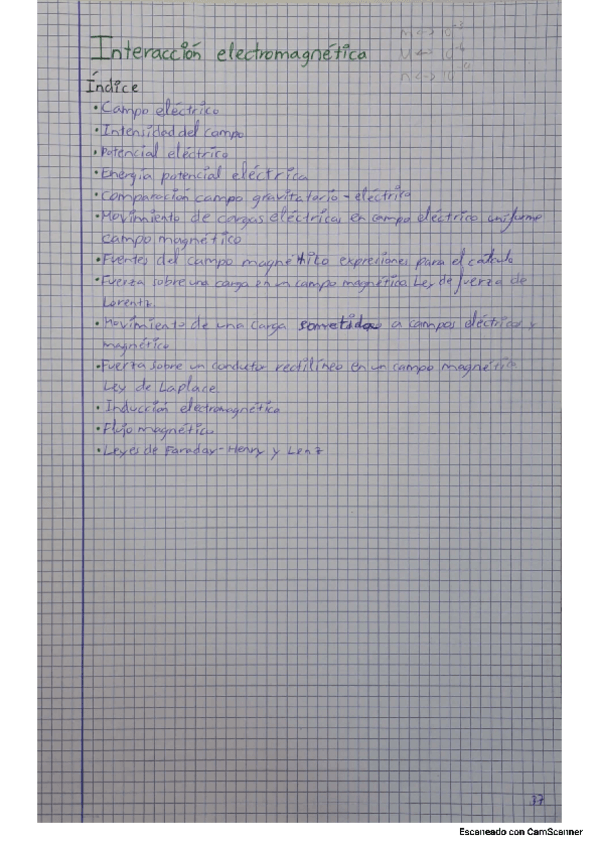 m <-> 10^-3
Interacción electromagnética
Índice
• Campo eléctrico
• Intensidad del campo
• Potencial eléctrico
• Energía potencial eléctrica
• Comparación campo gravitatorio - eléctrico
• Movimiento de cargas eléctricas en campo eléctrico uniforme
campo magnético
• Fuentes del campo magnético expresiones para el cálculo
• Fuerza sobre una carga en un campo magnético Ley de fuerza de
Lorentz
• Movimiento de una carga sometida a campos eléctrico y
magnético
• Fuerza sobre un conductor rectilíneo en un campo magnético
Ley de Laplace
• Inducción electromagnética
• Flujo magnético
• Leyes de Faraday-Henry y Lenz
37
Escaneado con CamScanner